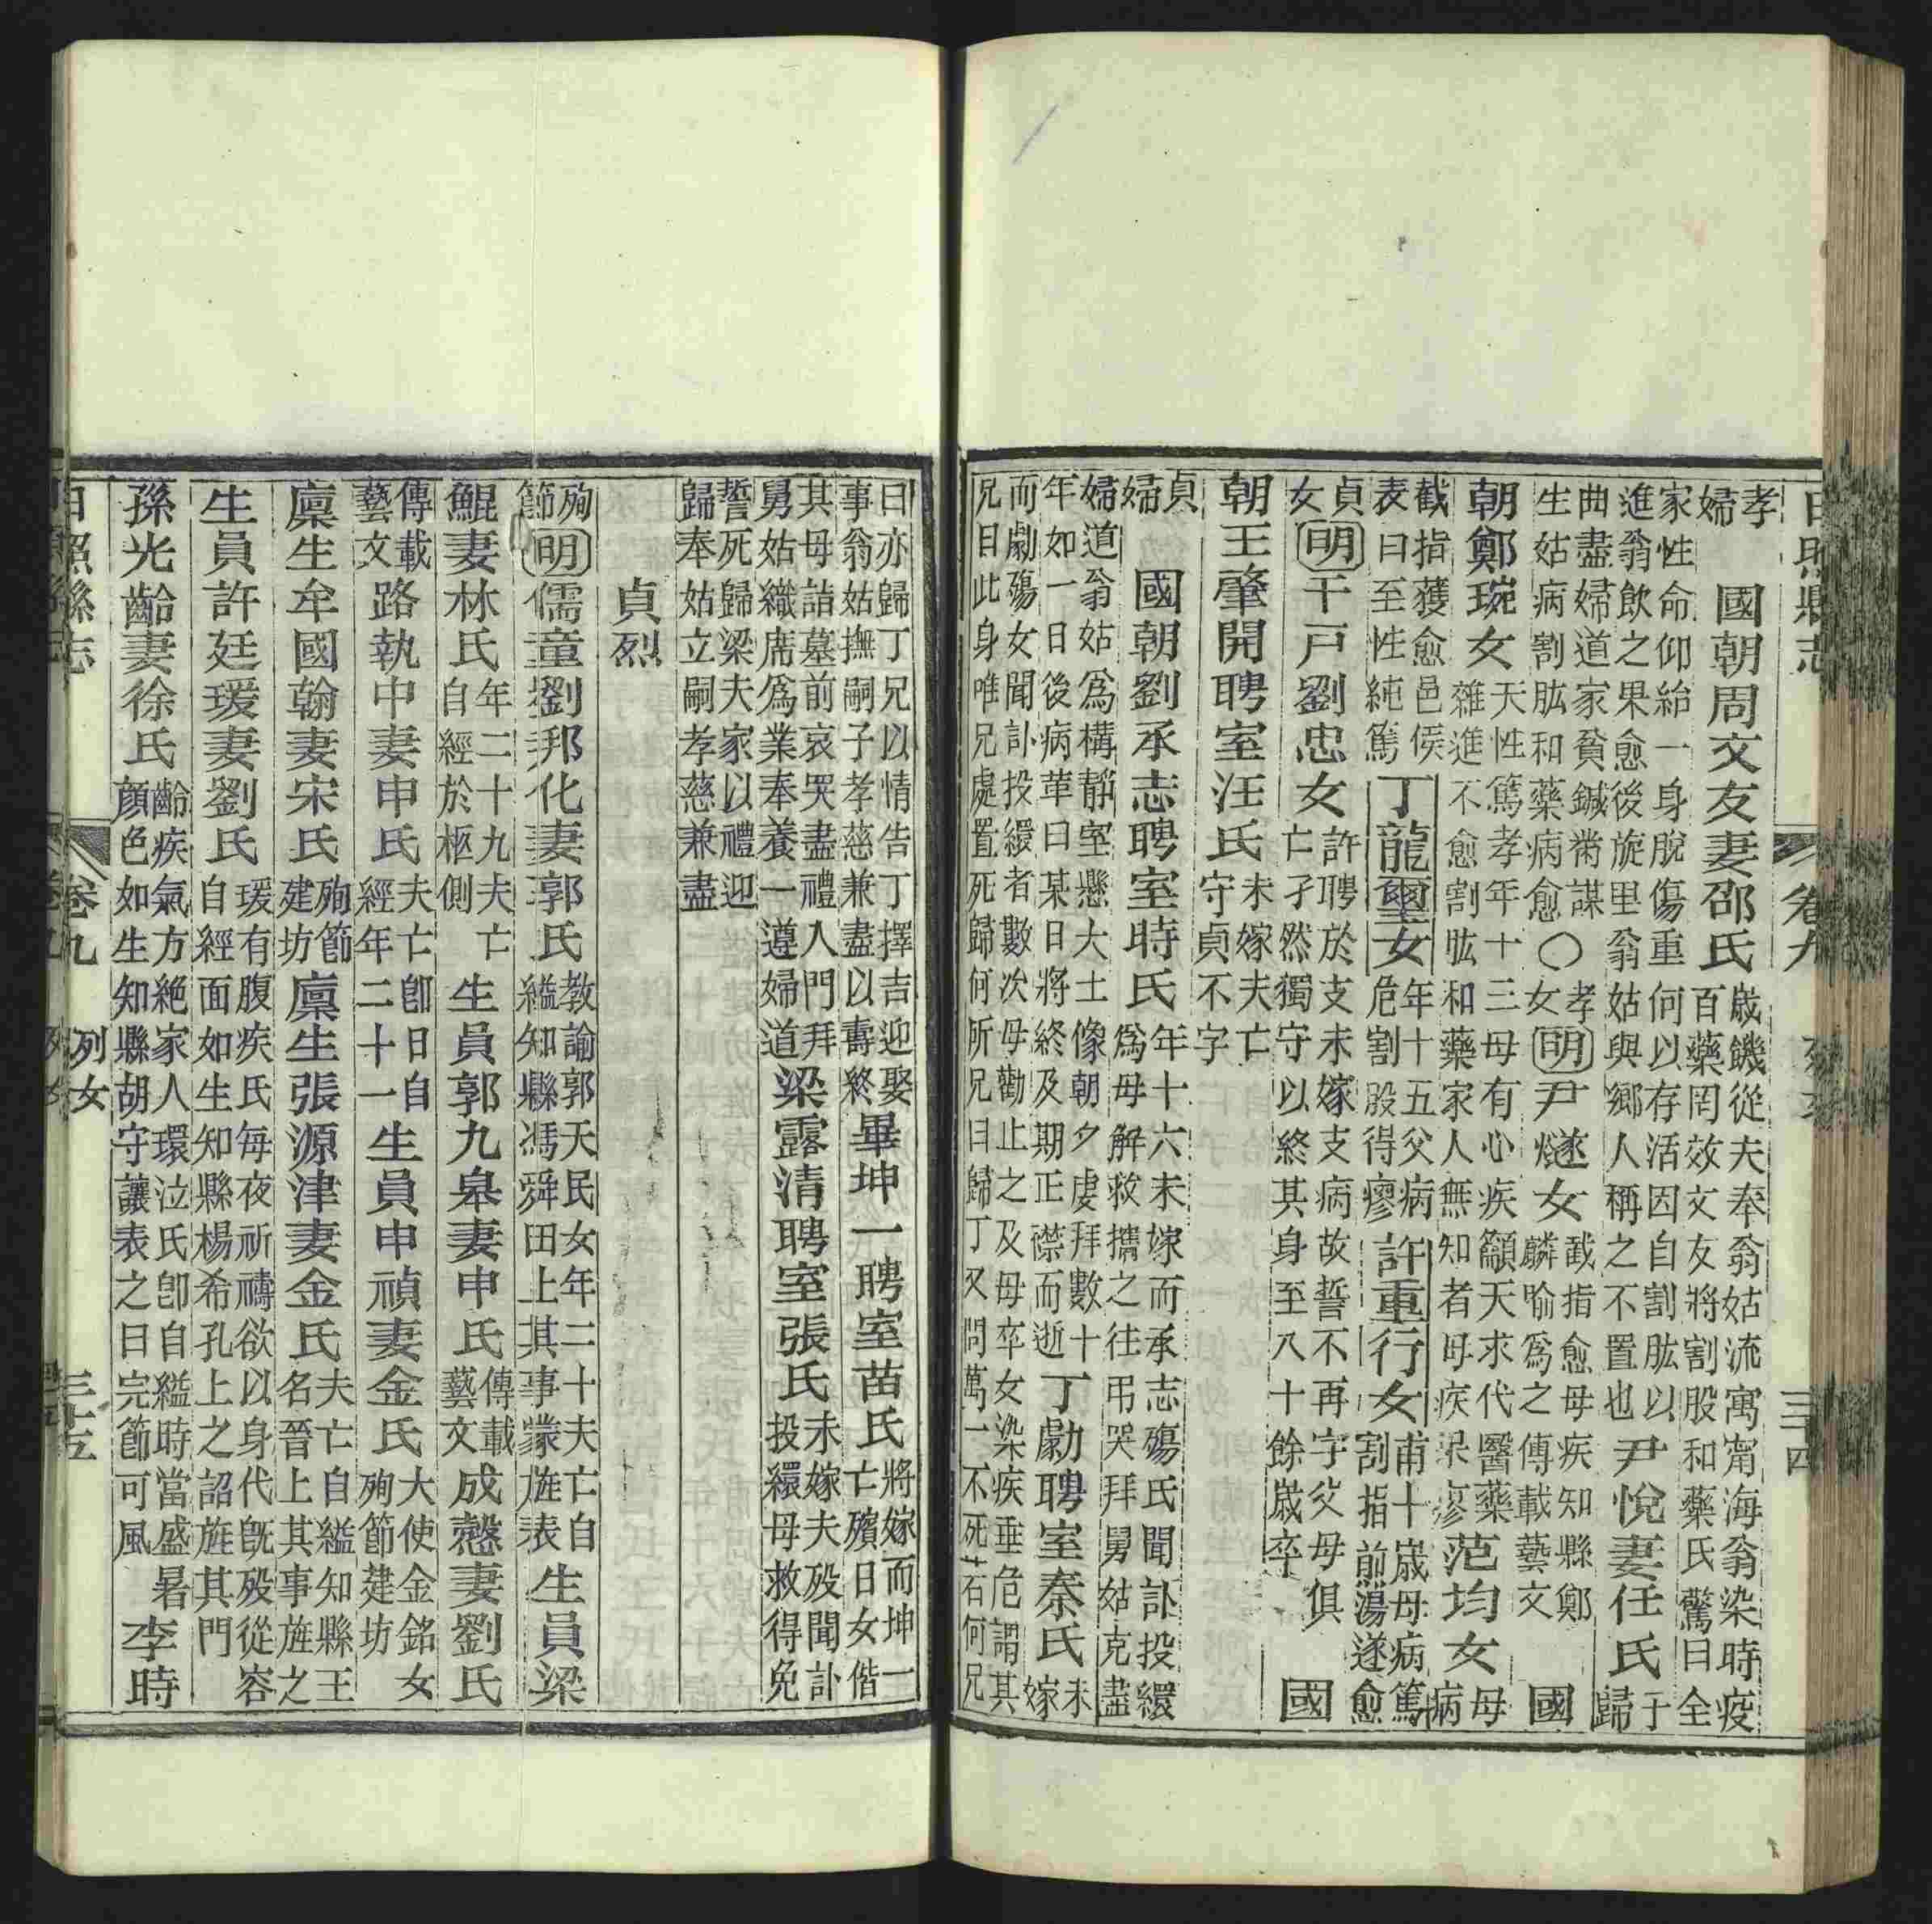 日照縣志 卷九 列女 三十四
孝婦 國朝周文友妻邵氏歲饑從夫奉翁姑流寓甯海翁染時疫百藥罔效文友將割股和藥氏驚曰全
家性命仰給一身脫傷重何以存活因自割肱以進翁飲之果愈後旋里翁姑與鄉人稱之不置也尹悅妻任氏于歸
曲盡婦道家貧鍼黹謀生姑病割肱和藥病愈〇孝女明尹燧女截指愈母疾知縣鄭麟喻爲之傳載藝文 國
朝鄭琬女天性篤孝年十三母有心疾籲天求代醫藥雜進不愈割肱和藥家人無知者母疾果廖范均女母病
截指獲愈邑侯表曰至性純篤丁龍璽女年十五父病危割股得瘳許重行女甫十歲母病篤割指煎湯遂愈
貞女明千戸劉忠女許聘於支未嫁支病故誓不再字父母俱亡孑然獨守以終其身至八十餘歲卒 國
朝王肇開聘室汪氏未嫁夫亡守貞不字
貞婦 國朝劉承志聘室時氏年十六未嫁而承志殤氏聞訃投繯爲母解救攜之往弔哭拜舅姑克盡
婦道翁姑爲構靜室懸大士像朝夕虔拜數十年如一日後病革曰某日將終及期正襟而逝丁勷聘室秦氏未嫁
而勷殤女聞訃投繯者數次母勸止之及母卒女染疾垂危謂其兄曰此身唯兄處置死歸何所兄曰歸丁又問萬一不死若何兄
曰亦歸丁兄以情告丁擇吉迎娶事翁姑撫嗣子孝慈兼盡以壽終畢坤一聘室苗氏將嫁而坤一亡殯日女偕
其母詣墓前哀哭盡禮人門拜舅姑織席爲業奉養一遵婦道梁露清聘室張氏未嫁夫殁聞訃投繯母救得免
誓死歸梁夫家以禮迎歸奉姑立嗣孝慈兼盡
貞烈
殉節明儒童劉邦化妻郭氏教諭郭天民女年二十夫亡自縊知縣馮舜田上其事蒙旌表生員梁
鯤妻林氏年二十九夫亡自經於柩側生員郭九皋妻申氏傳載藝文成憼妻劉氏
傳載藝文路執中妻申氏夫亡卽日自經年二十一生員申禎妻金氏大使金銘女殉節建坊
廩生牟國翰妻宋氏殉節建坊廩生張源津妻金氏夫亡自縊知縣王名晉上其事旌之
生員許廷瑗妻劉氏瑗有腹疾氏每夜祈禱欲以身代旣殁從容自經面如生知縣楊希孔上之詔旌其門
孫光齡妻徐氏齡疾氣方絕家人環泣氏卽自縊時當盛暑顏色如生知縣胡守讓表之曰完節可風李時
日照縣志 卷九 列女 三十五